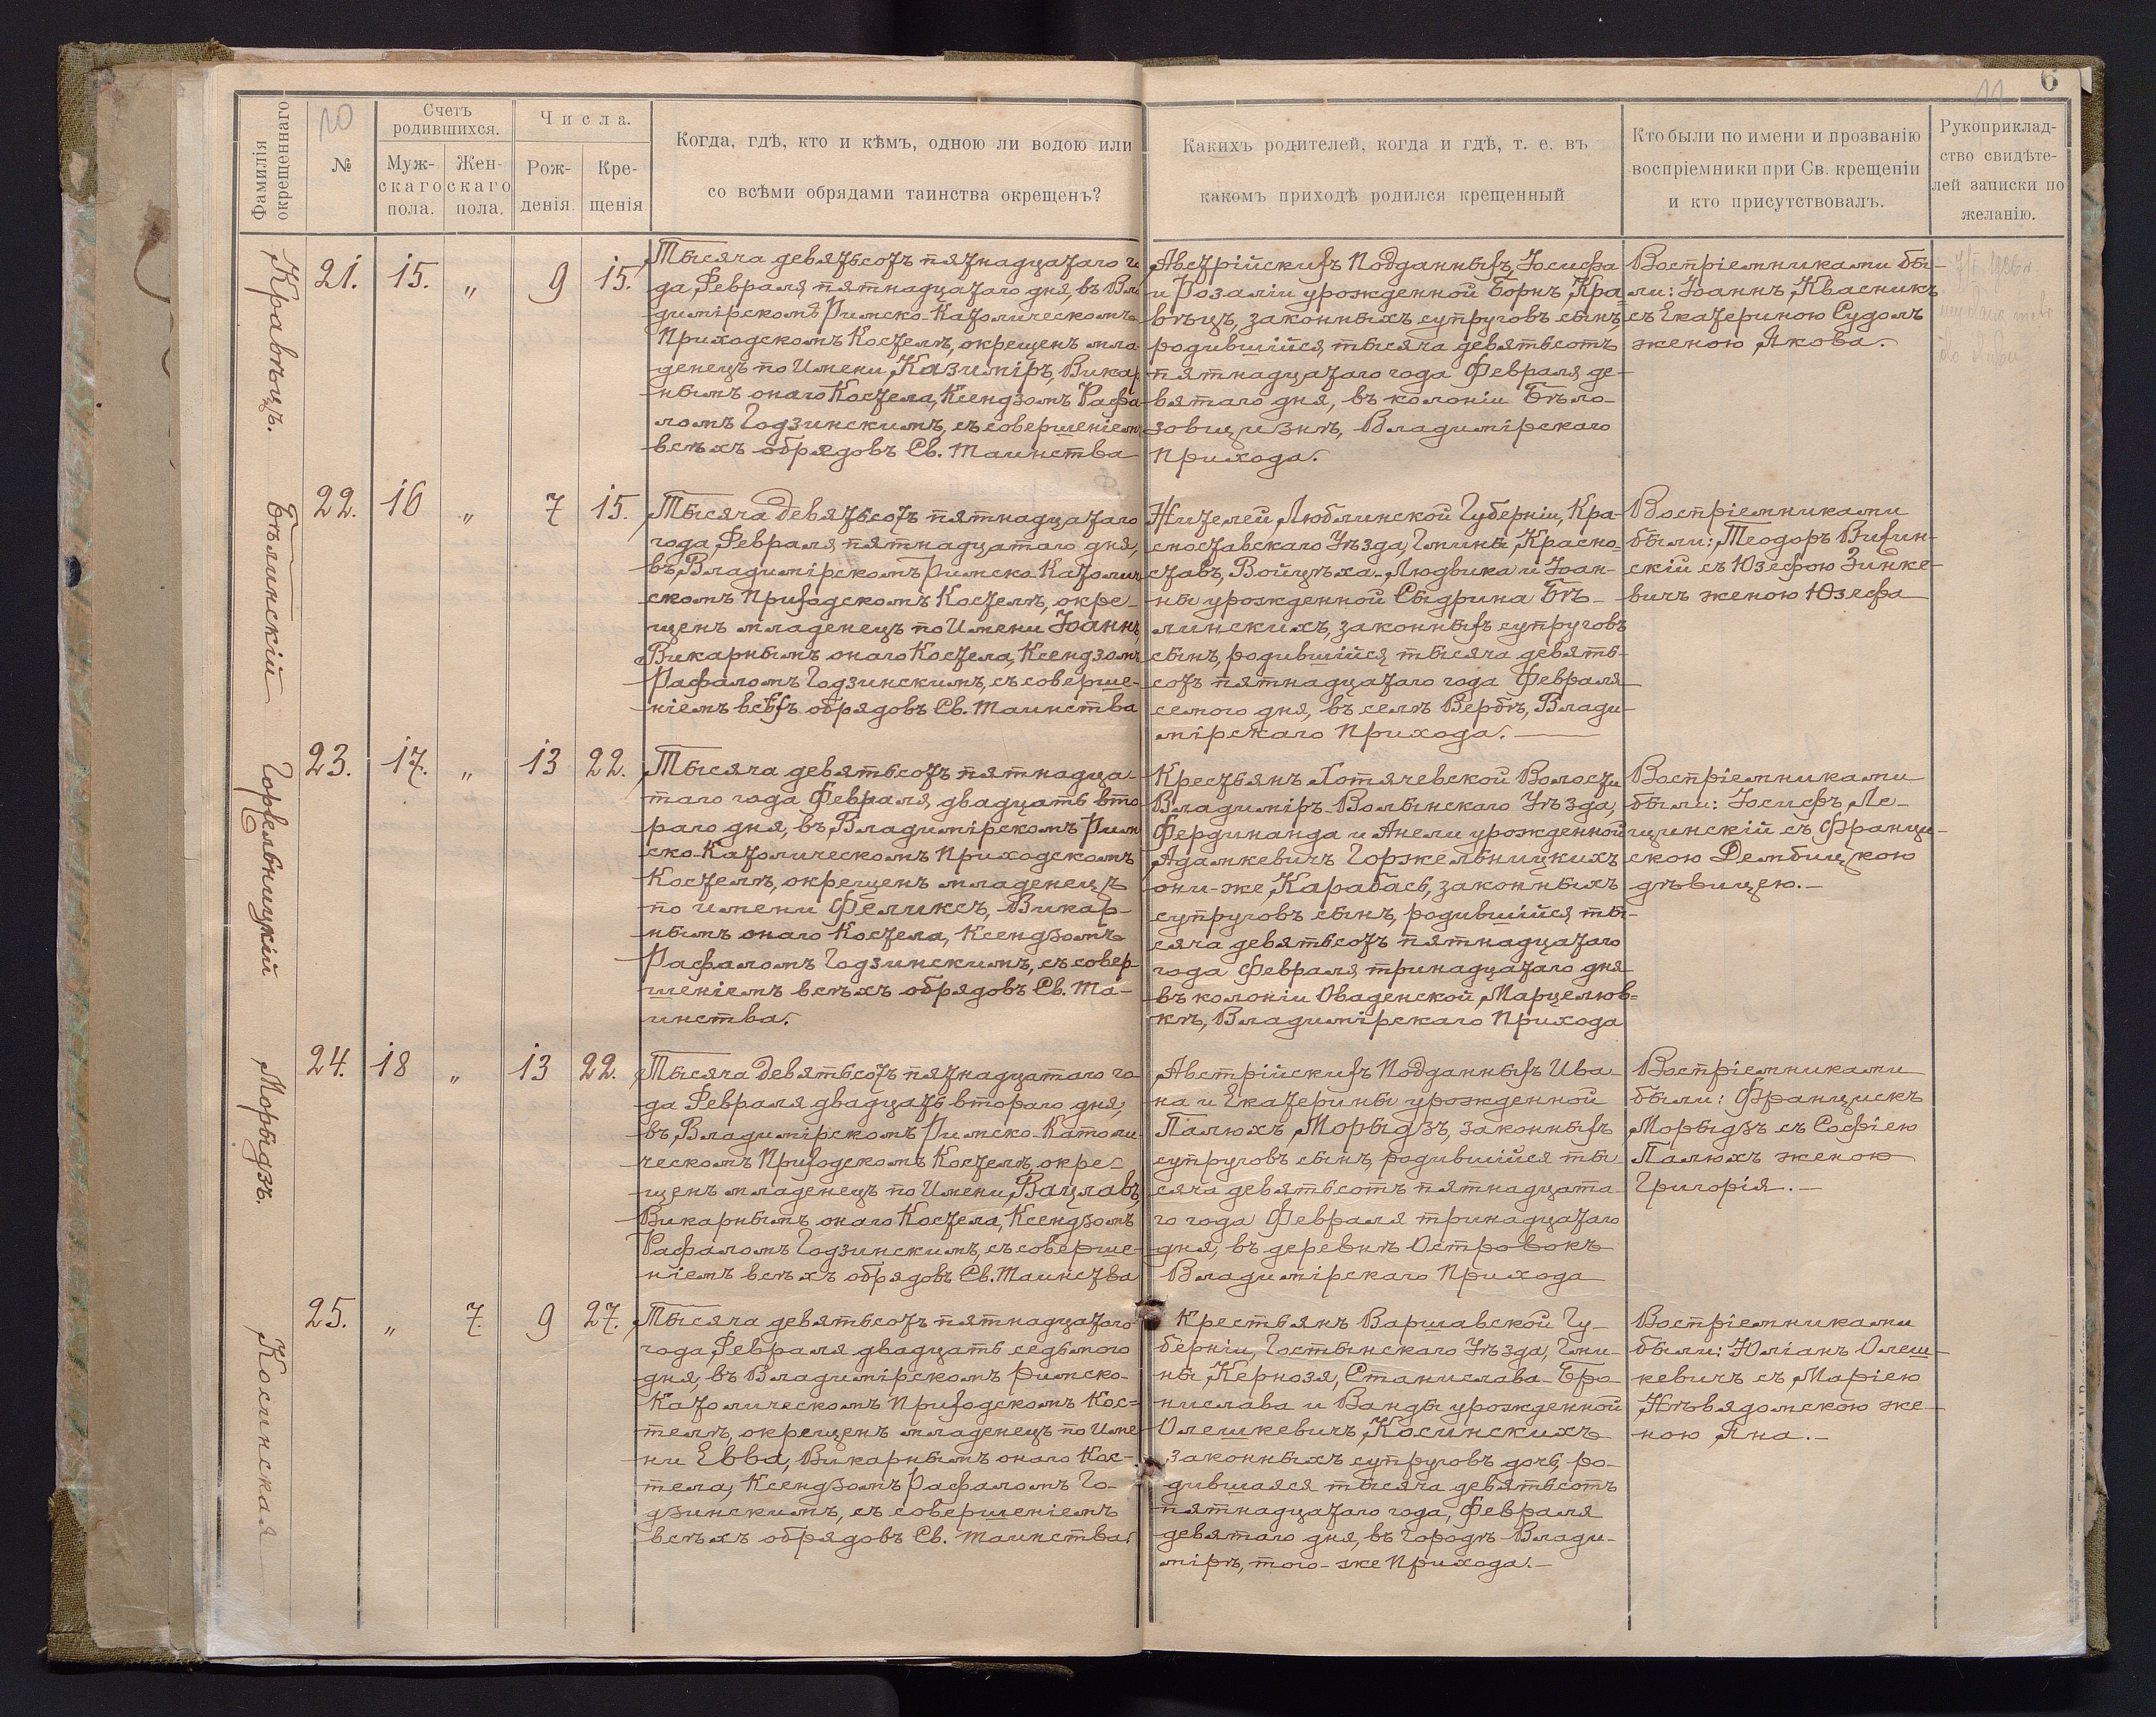 6
10
11
Фамилія окрещеннаго
№
Счетъ родившихся.
Муж-скаго пола.
Жен-скаго пола.
Числа.
Рож-денія.
Кре-щенія
Когда, гдѣ, кто и кѣмъ, одною ли водою или
со всѣми обрядами таинства окрещенъ?
Какихъ родителей, когда и гдѣ, т. е. въ
какомъ приходѣ родился крещенный
Кто были по имени и прозванію
воспріемники при Св. крещеніи
и кто присутствовалъ.
Рукоприклад-
ство свидѣте-
лей записки по
желанію.
Кравѣцъ.
21. 15. „ 9 15.
Тысяча девятьсотъ пятнадцатаго го
да, Февраля пятнадцатаго дня, въ Вла
димірскомъ Римско-Католическомъ
Приходскомъ Костелѣ, окрещенъ мла
денецъ по Имени, Казиміръ, Викар
нымъ онаго Костела, Ксендзомъ Рафа
ломъ Годзинскимъ, съ совершеніемъ
всѣхъ обрядовъ Св. Таинства
Австрійскихъ Подданныхъ, Іосифа
и Розаліи урожденной Борнъ, Кра-
вѣцъ, законныхъ супруговъ сынъ,
родившійся тысяча девятьсотъ
пятнадцатаго года Февраля де-
вятаго дня, въ колоніи Бѣло-
зовщизнѣ, Владимірскаго
Прихода.
Воспріемниками бы-
ли: Іоаннъ, Квасникъ
съ Екатериною Судолъ
женою Якова.
Бѣлинскій
22. 16 „ 7 15.
Тысяча девятьсотъ пятнадцатаго
года, Февраля, пятнадцатаго дня,
въ Владимірскомъ Римско Католич
скомъ Приходскомъ Костелѣ, окре-
щенъ младенецъ по Имени Іоаннъ,
Викарнымъ онаго Костела, Ксендзомъ
Рафаломъ Годзинскимъ, съ соверше-
ніемъ всѣхъ обрядовъ Св. Таинства
Жителей Люблинской Губерніи, Кра-
сноставскаго Уѣзда, Гмины, Красно-
ставъ, Войцѣха-Людвика и Іоан-
ны урожденной Сыдрина Бѣ-
линскихъ, законныхъ супруговъ
сынъ, родившійся тысяча девять-
сотъ пятнадцатаго года Февраля
семого дня, въ селѣ Вербѣ, Влади-
мірскаго Прихода.
Воспріемниками
были: Теодоръ
скій съ Юзефою Зинке-
вичъ женою Юзефа
Горжельницкій
23. 17. „ 13 22.
Тысяча девятьсотъ пятнадца-
таго года Февраля, двадцать вто
раго дня, въ Владимірскомъ Рим
ско-Католическомъ Приходскомъ
Костелѣ, окрещенъ младенецъ
по имени Феликсъ, Викар-
нымъ онаго Костела, Ксендзомъ
Рафаломъ Годзинскимъ, съ совер-
шеніемъ всѣхъ обрядовъ Св. Та-
инства.
Крестьянъ Хотячевской Волости
Владиміръ-Волынскаго Уѣзда,
Фердинанда и Анели урожденной
Адамкевичъ Горжельницкихъ
они-же, Карабась, законныхъ
супруговъ сынъ, родившійся ты-
сяча девятьсотъ пятнадцатаго
года Февраля тринадцатаго дня
въ колоніи Оваденской, Марцелюв-
кѣ, Владимірскаго Прихода
Воспріемниками
были: Іосифъ, Ле-
щинскій съ Франци-
скою Дембицкою
дѣвицею.-
Морыдзъ.
24. 18 „ 13 22.
Тысяча девятьсотъ пятнадцатаго го-
да Февраля двадцать втораго дня,
въ Владимірскомъ Римско-Католи
ческомъ Приходскомъ Костелѣ, окре-
щенъ младенецъ по Имени, Вацлавъ,
Викарнымъ онаго Костела, Ксендзомъ
Рафаломъ Годзинскимъ, съ соверше-
ніемъ всѣхъ обрядовъ Св. Таинства
Австрійскихъ Подданныхъ Ива-
на и Екатерины урожденной
Палюхъ, Морыдзъ, законныхъ
супруговъ сынъ, родившійся ты-
сяча девятьсотъ пятнадцата-
го года Февраля тринадцатаго
дня, въ деревнѣ Островокъ
Владимірскаго Прихода
Воспріемниками
были: Францискъ
Морыдзъ съ Софіею
Палюхъ женою
Григорія.-
Косинская
25. „ 7 9 27.
Тысяча девятьсотъ пятнадцатаго
года, Февраля двадцать седьмого
дня, въ Владимірскомъ Римско-
Католическомъ Приходскомъ Кос-
телѣ, окрещенъ младенецъ по Име
ни Евва, Викарнымъ онаго Кос-
тела, Ксендзомъ Рафаломъ Го-
дзинскимъ, съ совершеніемъ
всѣхъ обрядовъ Св. Таинства.
Крестьянъ Варшавской Гу-
берніи, Гостынскаго Уѣзда, Гми-
ны, Кернозя, Станислава-Бро
нислава и Ванды урожденной
Олешкевичъ, Косинскихъ
законныхъ супруговъ дочь, ро-
дившаяся тысяча девятьсотъ
пятнадцатаго года, Февраля
девятаго дня, въ городѣ Влади-
мірѣ, того-же Прихода.-
Воспріемниками
были: Юліанъ Олеш-
кевичъ съ, Маріею
Нѣвядомскою же-
ною Яна.-